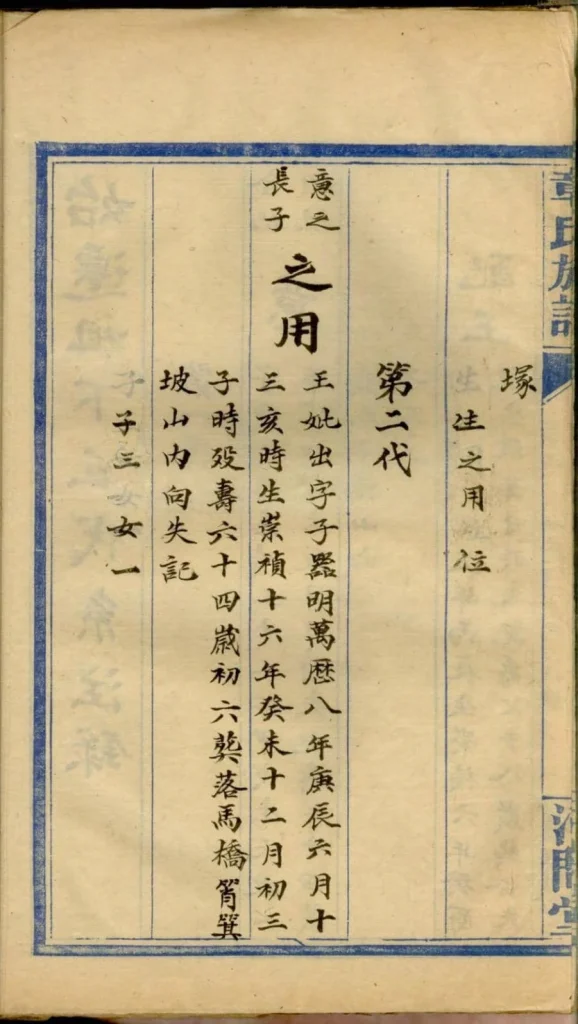 章氏族譜
河間堂
塚
生之用位
第二代
意之
長子
之用
王妣出字子器明萬曆八年庚辰六月十
三亥時生崇禎十六年癸未十二月初三
子時歿壽六十四歲初六葬落馬橋筲箕
坡山內向失記
子三女一